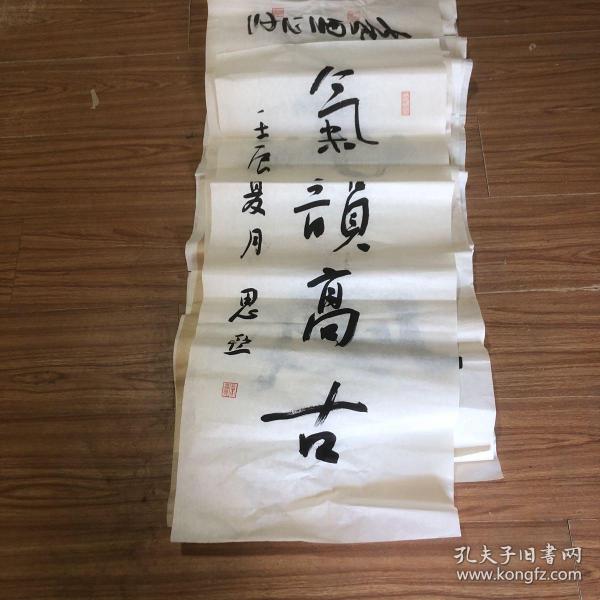 氣韻高古
壬辰夏月 思
孔夫子旧书网
www.kongfz.com